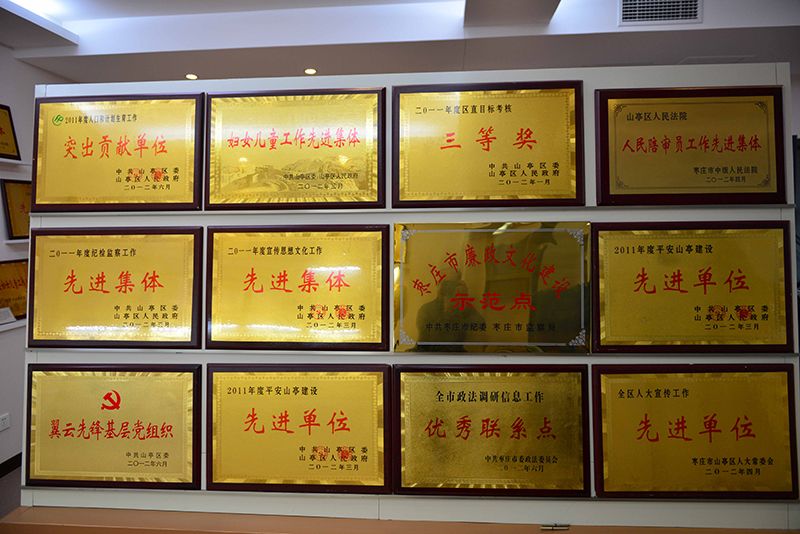 2011年度人口和计划生育工作
突出贡献单位
中共山亭区委
山亭区人民政府
二〇一二年六月
妇女儿童工作先进集体
中共山亭区委 山亭区人民政府
二〇一二年三月
二〇一一年度区直目标考核
三等奖
中共山亭区委
山亭区人民政府
二〇一二年一月
山亭区人民法院
人民陪审员工作先进集体
枣庄市中级人民法院
二〇一二年四月
二〇一一年度纪检监察工作
先进集体
中共山亭区委
山亭区人民政府
二〇一二年二月
二〇一一年度宣传思想文化工作
先进集体
中共山亭区委
山亭区人民政府
二〇一二年三月
枣庄市廉政文化建设
示范点
中共枣庄市纪委 枣庄市监察局
2011年度平安山亭建设
先进单位
中共山亭区委
山亭区人民政府
二〇一二年三月
翼云先锋基层党组织
中共山亭区委
二〇一二年六月
2011年度平安山亭建设
先进单位
中共山亭区委
山亭区人民政府
二〇一二年三月
全市政法调研信息工作
优秀联系点
中共枣庄市委政法委员会
二〇一二年六月
全区人大宣传工作
先进单位
枣庄市山亭区人大常委会
二〇一二年四月